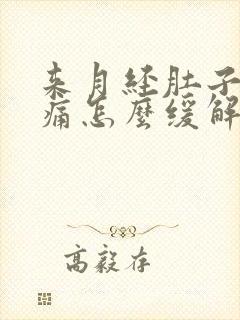 来月经肚子
痛怎麼缓解
高毅存